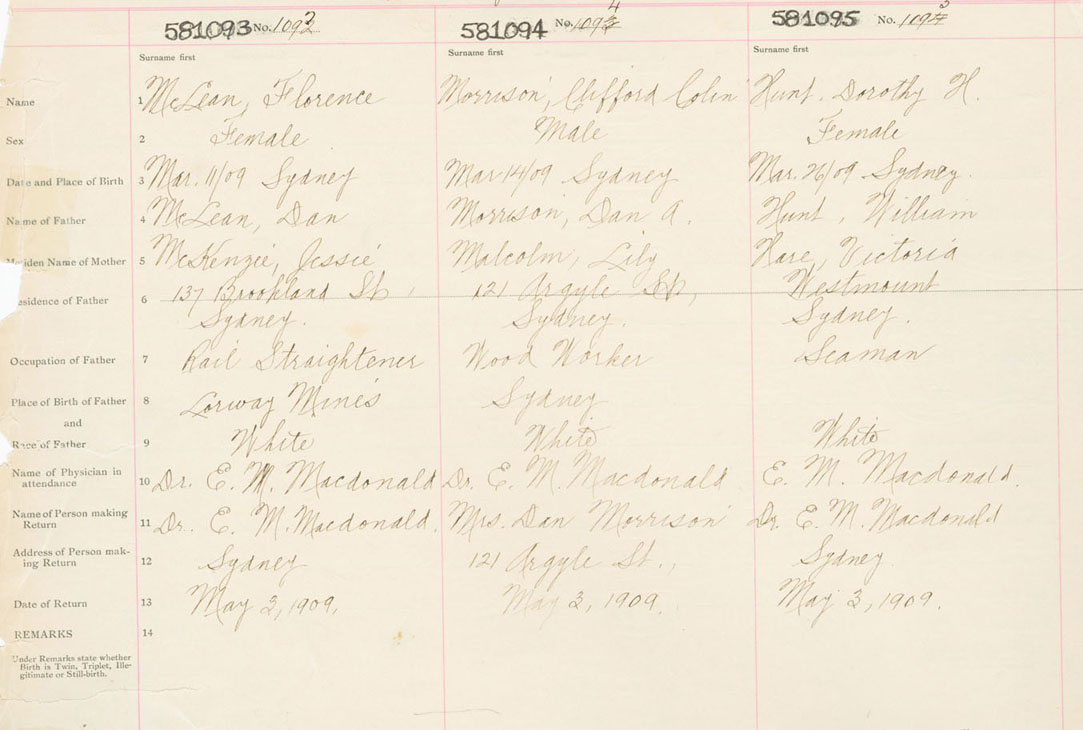 581093 No. 1093 581094 No. 1094 581095 No. 1095
Surname first Surname first Surname first
Name 1 McLean, Florence Morrison, Clifford Colin Hunt. Dorothy H.
Sex 2 Female Male Female
Date and Place of Birth 3 Mar. 11/09 Sydney Mar 14/09 Sydney Mar. 26/09 Sydney.
Name of Father 4 McLean, Dan Morrison, Dan A. Hunt, William
Maiden Name of Mother 5 McKenzie, Jessie Malcolm, Lily Hare, Victoria
Residence of Father 6 137 Brookland St, 121 Argyle St, Westmount
Sydney. Sydney. Sydney.
Occupation of Father 7 Rail Straightener Wood Worker Seaman
Place of Birth of Father 8 Lorway Mines Sydney
and
Race of Father 9 White White White
Name of Physician in
attendance 10 Dr. E. M. Macdonald Dr. E. M. Macdonald E. M. Macdonald.
Name of Person making
Return 11 Dr. E. M. Macdonald. Mrs. Dan Morrison Dr. E. M. Macdonald
Address of Person mak-
ing Return 12 Sydney 121 Argyle St., Sydney.
Date of Return 13 May 3, 1909, May 3, 1909. May 3, 1909.
REMARKS 14
Under Remarks state whether
Birth is Twin, Triplet, Ille-
gitimate or Still-birth.